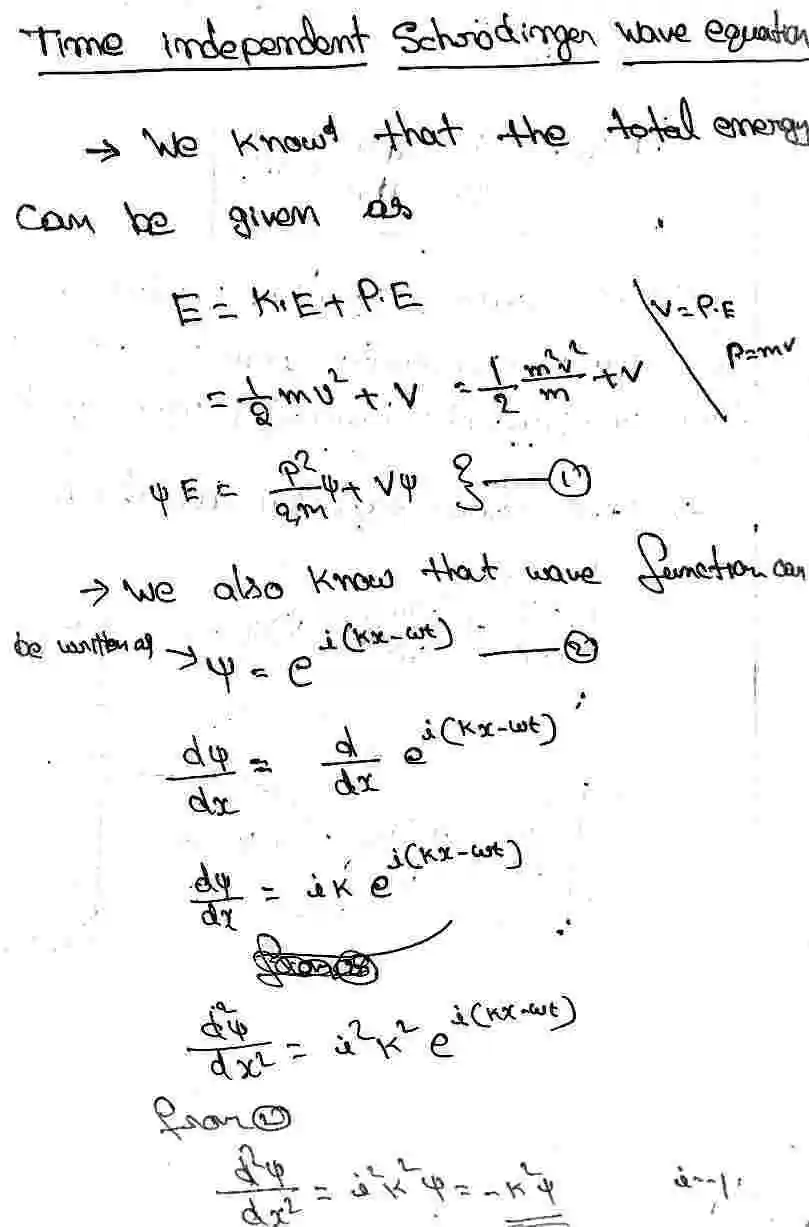 Time independent Schrodinger wave equation
→ We know that the total energy
can be given as
E = K.E + P.E
V = P.E
P = mv
= 1/2 mv² + V = 1/2 m²v²/m + V
ψE = P²/2m ψ + Vψ } — ①
→ We also know that wave function can
be written as → ψ = e^i(kx-ωt) — ②
dψ/dx = d/dx e^i(kx-ωt)
dψ/dx = ik e^i(kx-ωt)
d²ψ/dx² = i²k² e^i(kx-ωt)
from ②
d²ψ/dx² = i²k²ψ = -k²ψ